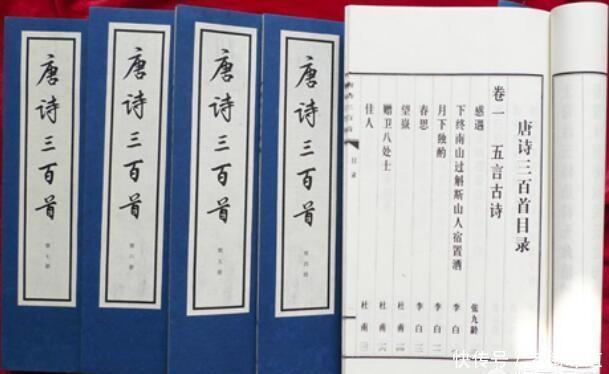 唐诗三百首
第七册
唐诗三百首
第六册
唐诗三百首
第五册
唐诗三百首
第四册
唐诗三百首目录
卷一 五言古诗
感遇 张九龄
下终南山过斛斯山人宿置酒 李白
月下独酌 李白 二
春思 李白 三
望嶽 杜甫
赠卫八处士 杜甫
佳人 杜甫
唐诗三百首 目录
快传号